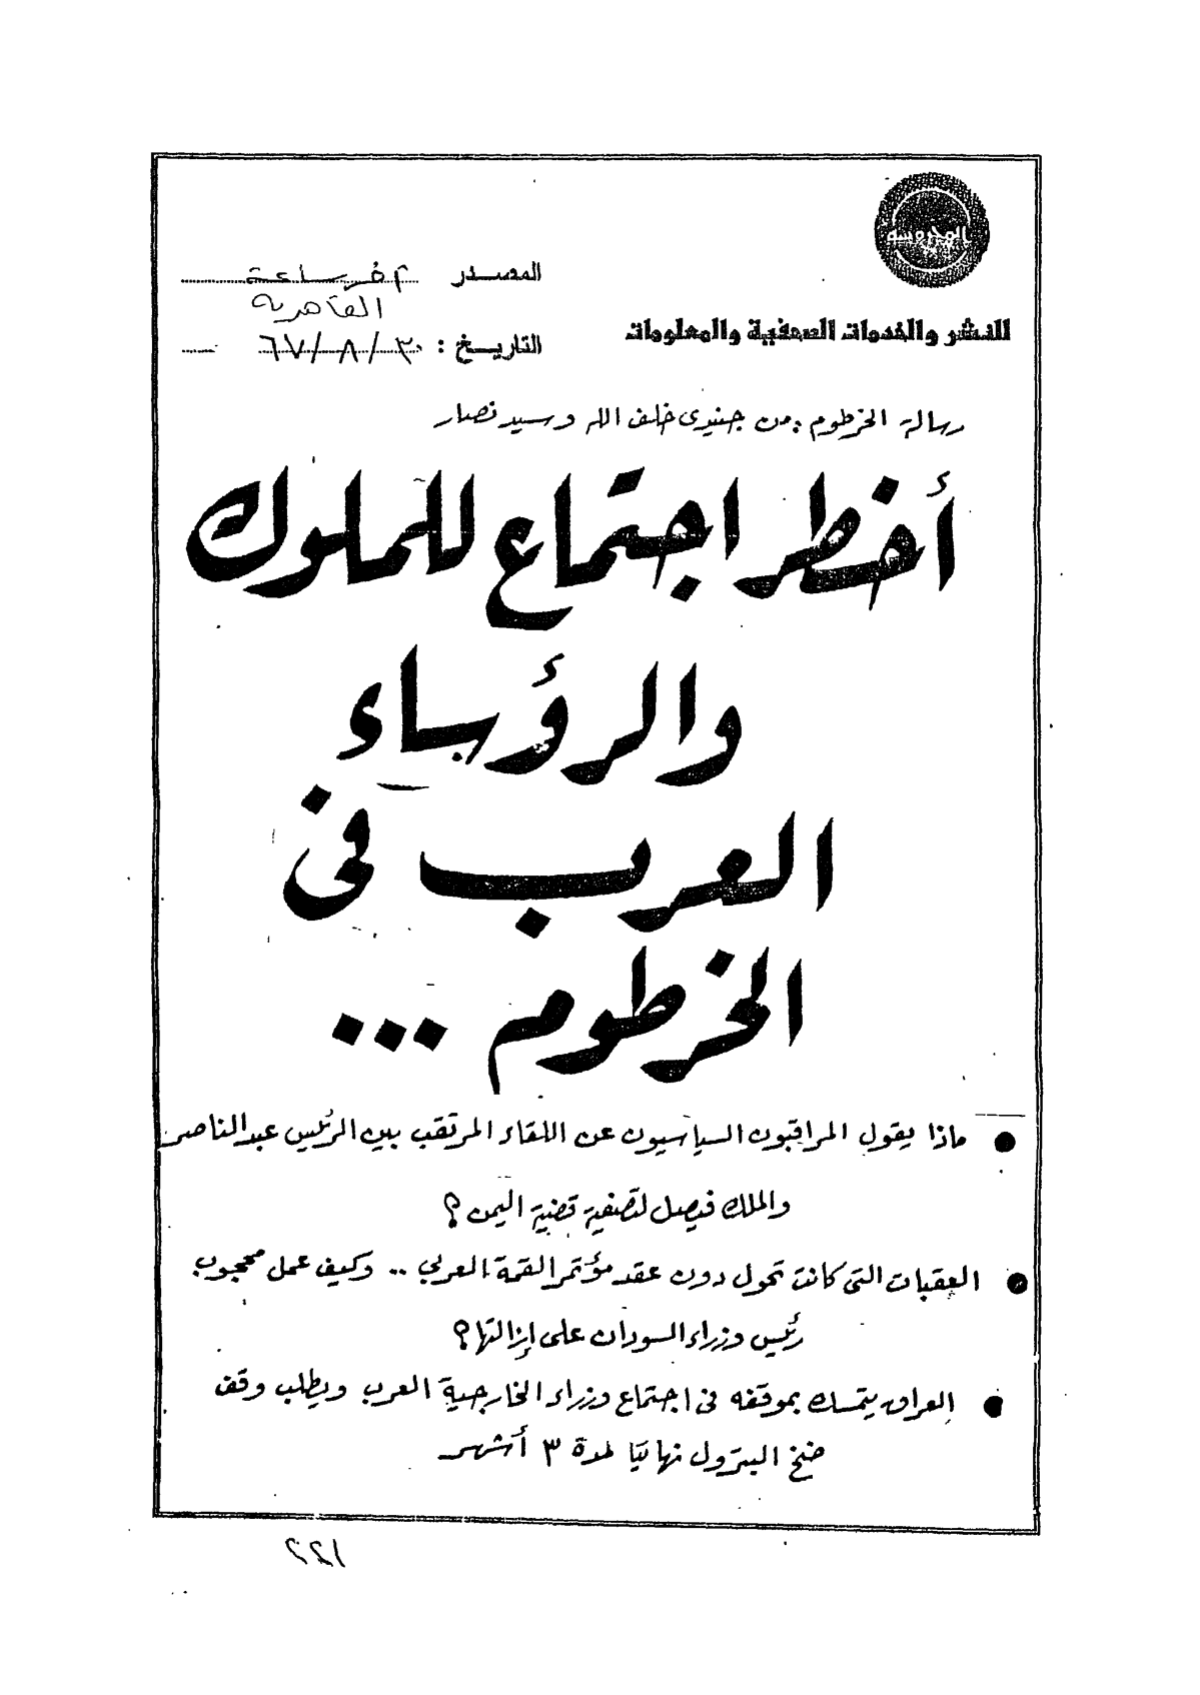 المحروسة
المصدر آخر ساعة
القاهرية
للنشر والخدمات الصحفية والمعلومات
التاريخ : ٣٠/٨/٦٧
رسالة الخرطوم : من جنيدى خلف الله وسيد نصار
أخطر اجتماع للملوك
والرؤساء
العرب فى
الخرطوم ...
● ماذا يقول المراقبون السياسيون عن اللقاء المرتقب بين الرئيس عبد الناصر
والملك فيصل لتصفية قضية اليمن ؟
● العقبات التى كانت تحول دون عقد مؤتمر القمة العربي .. وكيف عمل محجوب
رئيس وزراء السودان على إزالتها ؟
● العراق يتمسك بموقفه فى اجتماع وزراء الخارجية العرب ويطلب وقف
ضخ البترول نهائيا لمدة ٣ أشهر